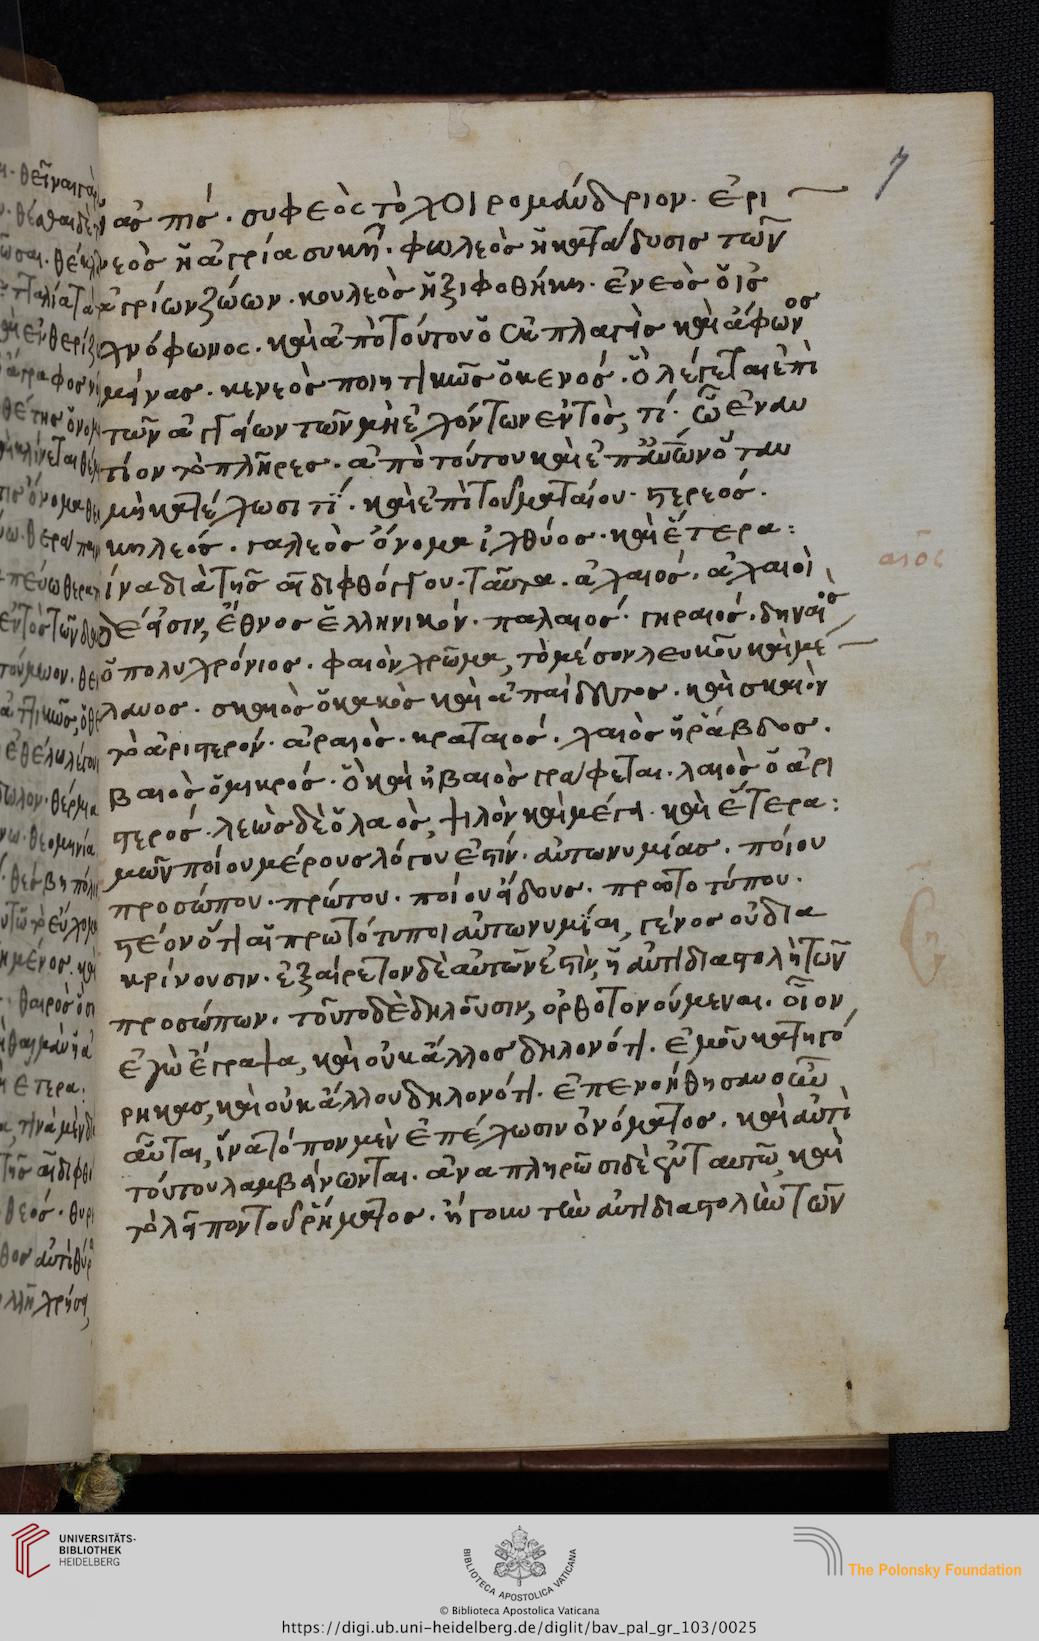 7
ἀσπίς. συφεὸς τὸ χοιρομάνδριον. ἐρι
νεὸς ἡ ἀγρία συκῆ. φωλεὸς ἡ κατάδυσις τῶν
ἀγρίων ζώων. κουλεὸς ἡ ξιφοθήκη. ἐνεὸς ὁ ἰσ
χνόφωνος. καὶ ἀπὸ τούτου ὁ ἐκπλαγεὶς καὶ ἄφωνος
μείνας. κενεὸς ποιητικῶς ὁ κενός. ὃ λέγεται ἐπὶ
τῶν ἀγγείων τῶν μὴ ἐχόντων ἐντός τι. ὧ ἐναν
τίον τὸ πλῆρες. ἀπὸ τούτου καὶ ἐπ αὐτῶν ὅταν
μὴ κατέχωσί τι. καὶ ἐπὶ τοῦ ματαίου. στερεός.
κηλεός. γαλεὸς ὄνομα ἰχθύος. καὶ ἕτερα:
ἵνα διὰ τῆς αι διφθόγγου. ταῦτα. ἀχαιός. ἀχαιοὶ
δέ εἰσιν, ἔθνος ἑλληνικόν. παλαιός. γηραιός. δηναιὸς
ὁ πολυχρόνιος. φαιὸν χρῶμα, τὸ μέσον λευκοῦ καὶ μέ
λανος. σκαιὸς ὁ κακὸς καὶ ἀπαίδευτος. καὶ σκαιὸν
τὸ ἀριστερόν. ἀραιὸς. κραταιός. χαιὸς ἡ ῥάβδος.
βαιὸς ὁ μικρός. ὃ καὶ ἠβαιὸς γράφεται. λαιὸς ὁ ἀρι
στερός. λεὼς δὲ ὁ λαὸς, ψιλὸν καὶ μέγα. καὶ ἕτερα:
μῶν ποίου μέρους λόγου ἐστίν. ἀντωνυμίας. ποίου
προσώπου. πρώτου. ποίου εἴδους. πρωτοτύπου.
στέον ὅτι αἱ πρωτότυποι ἀντωνυμίαι, γένος οὐ δια
κρίνουσιν. ἐξαίρετον δὲ αὐτῶν ἐστὶν, ἡ ἀντιδιαστολὴ τῶν
προσώπων. τοῦτο δὲ δηλοῦσιν, ὀρθοτονούμεναι. οἷον,
ἐγὼ ἔγραψα, καὶ οὐκ ἄλλος δηλονότι. ἐμοῦ κατηγό
ρηκας, καὶ οὐκ ἄλλου δηλονότι. ἐπενοήθησαν οὖν
αὗται, ἵνα τόπον μὲν ἐπέχωσιν ὀνόματος. καὶ ἀντὶ
τούτου λαμβάνωνται. ἀναπληρῶσι δὲ ἐν ταυτῶ, καὶ
τὸ λεῖπον τοῦ ῥήματος. ἤγουν τὴν ἀντιδιαστολὴν τῶν
αιος
UNIVERSITÄTS-
BIBLIOTHEK
HEIDELBERG
BIBLIOTECA APOSTOLICA VATICANA
The Polonsky Foundation
© Biblioteca Apostolica Vaticana
https://digi.ub.uni-heidelberg.de/diglit/bav_pal_gr_103/0025